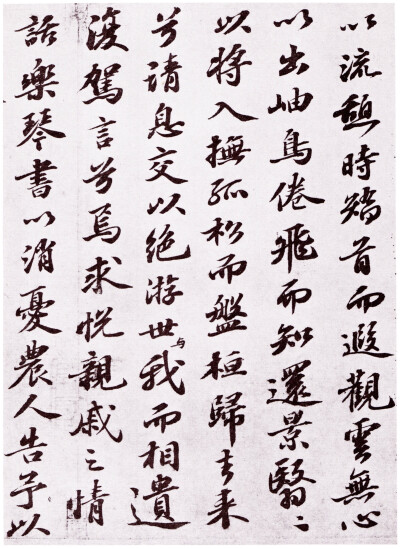 以流憩時矯首而遐觀雲無心
以出岫鳥倦飛而知還景翳〻
以將入撫孤松而盤桓歸去来
兮請息交以絶游世與我而相遺
復駕言兮焉求悅親戚之情
話樂琴書以消憂農人告予以